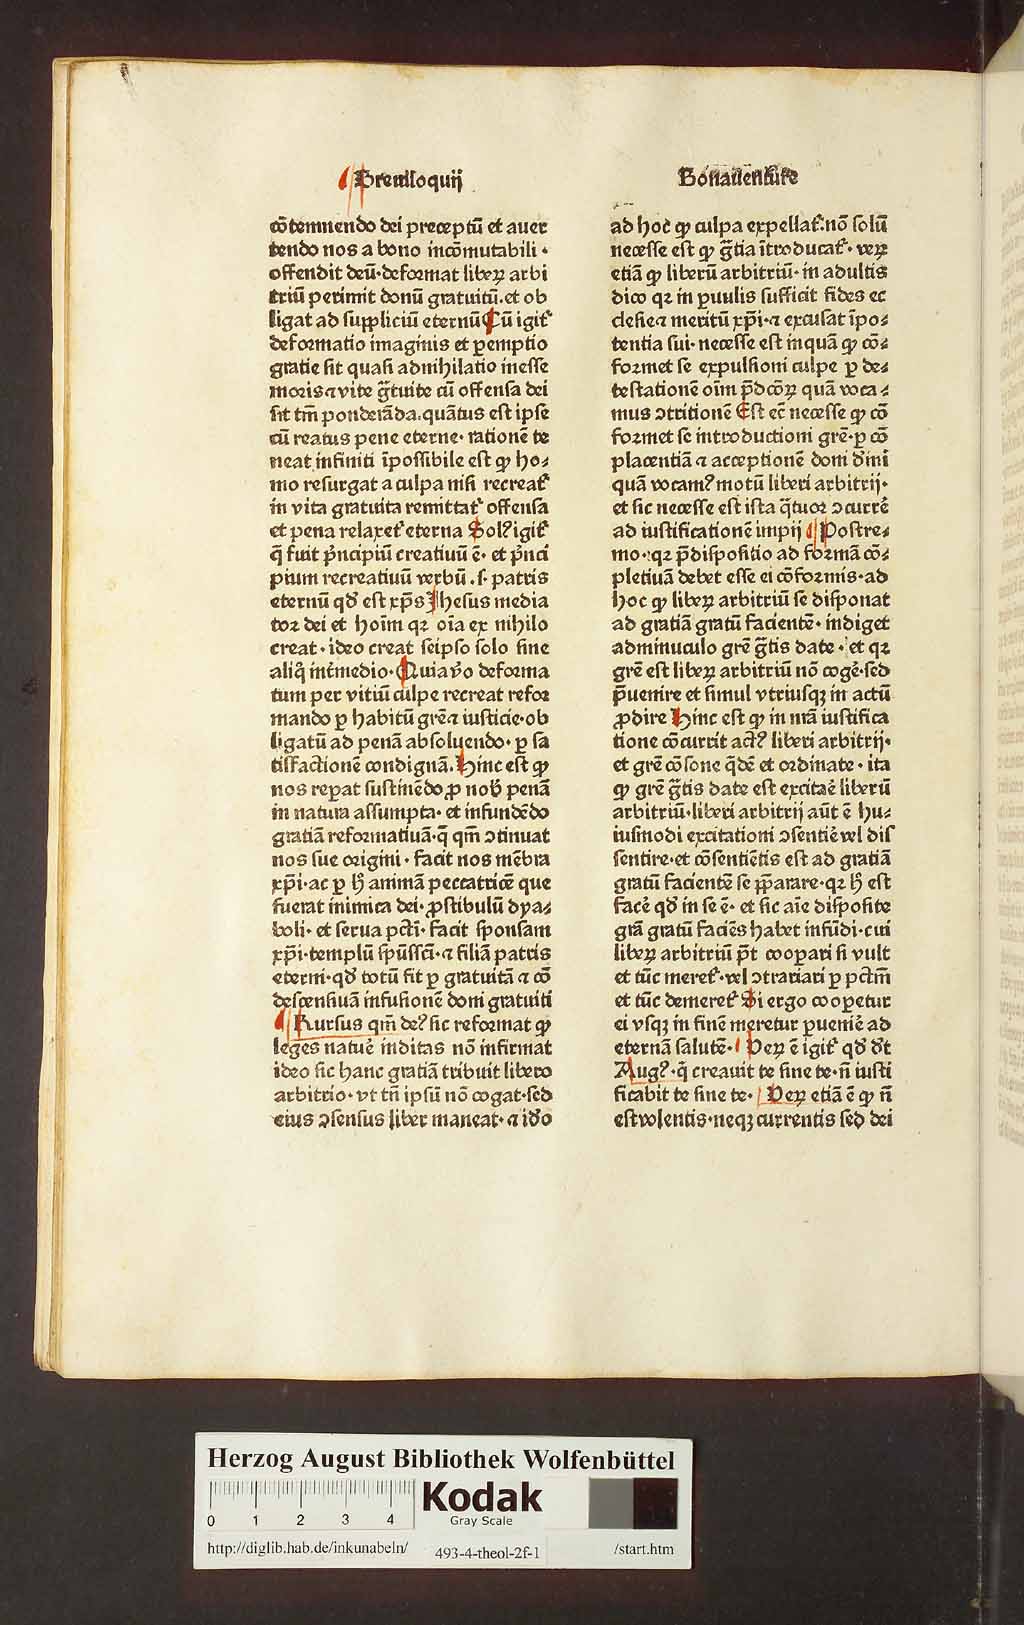 Breuiloquij
cõtemnendo dei preceptũ et auer
tendo nos a bono incõmutabili ·
offendit deũ·deformat liberꝝ arbi
triũ perimit donũ gratuitũ.et ob
ligat ad suppliciũ eternũ Cũ igit᷑
deformatio imaginis et ꝑemptio
gratie sit quasi adnihilatio inesse
moris ⁊ vite g̃tuite cũ offensa dei
sit tm̃ ponderãda.quãtus est ipse
cũ reatus pene eterne· rationẽ te
neat infiniti ĩpossibile est ꝙ ho⸗
mo resurgat a culpa nisi recreat᷑
in vita gratuita remittat᷑ offensa
et pena relaxet᷑ eterna Solꝰ igit᷑
q̃ fuit p̃ncipiũ creatiuũ ẽ· et p̃nci
pium recreatiuũ verbũ .s· patris
eternũ qđ est xp̃s Jhesus media
tor dei et hoĩm qꝛ oĩa ex nihilo
creat · ideo creat seipso solo sine
aliq̃ int̃medio· Quia v̾o deforma
tum per vitiũ culpe recreat refor
mando ꝑ habitũ gr̃e ⁊ iusticie·ob
ligatũ ad penã absoluendo· ꝑ sa
tisfactionẽ condignã. Hinc est ꝙ
nos reꝑat sustinẽdo ꝓ nob̾ penã
in natura assumpta· et infundẽdo
gratiã reformatiuã·q̃ qm̃ ɔtinuat
nos sue origini · facit nos mẽbra
xp̃i·ac ꝑ h̾ animã peccatricẽ que
fuerat inimica dei· ꝓstibulũ dya⸗
boli· et serua pcti· facit sponsam
xp̃i·templũ sp̃ussci·⁊ filiã patris
eterni·qđ totũ fit ꝑ gratuitã ⁊ cõ
descensiuã infusionẽ doni gratuiti
Rursus qm̃ deꝰ sic reformat ꝙ
leges natur̃e inditas nõ infirmat
ideo sic hanc gratiã tribuit libero
arbitrio· vt tñ ipsũ nõ cogat·sed
eius ɔsensus liber maneat· ⁊ id̾o
Bonauenture
ad hoc ꝙ culpa expellat᷑·nõ solũ
necesse est ꝙ g̃tia ĩtroducat᷑ · verꝝ
etiã ꝙ liberũ arbitriũ· in adultis
dico qꝛ in ꝑuulis sufficit fides ec
clesie ⁊ meritũ xp̃i·⁊ excusat ĩpo⸗
tentia sui· necesse est inquã ꝙ cõ⸗
formet se expulsioni culpe ꝑ de⸗
testationẽ oĩm p̃dcõꝝ quã voca ⸗
mus ɔtritionẽ Est ec̃ necesse ꝙ cõ
formet se introductioni gr̃e· ꝑ cõ
placentiã ⁊ acceptionẽ doni diuini
quã vocamꝰ motũ liberi arbitrij·
et sic necesse est ista q̃tuor ɔcurrẽ
ad iustificationẽ impij Postre⸗
mo·qꝛ p̃dispositio ad formã cõ⸗
pletiuã debet esse ei cõformis·ad
hoc ꝙ liberꝝ arbitriũ se disponat
ad gratiã gratũ facientẽ· indiget
adminuculo gr̃e g̃tis date · et qꝛ
gr̃e est liberꝝ arbitriũ nõ cogẽ·sed
p̃uenire et simul vtriusqꝫ in actũ
ꝓdire Hinc est ꝙ in nr̃a iustifica
tione cõcurrit actꝰ liberi arbitrij·
et gr̃e cõsone q̃dẽ et ordinate · ita
ꝙ gr̃e g̃tis date est excitaẽ liberũ
arbitriũ·liberi arbitrij aũt ẽ hu⸗
iusmodi excitationi ɔsentiẽ vel dis
sentire·et cõsentiẽtis est ad gratiã
gratũ facientẽ se p̃parare·qꝛ h̾ est
facẽ qđ in se ẽ· et sic aĩe disposite
gr̃a gratũ faciẽs habet infũdi·cui
liberꝝ arbitriũ p̃t cooꝑari si vult
et tũc meret᷑·vel ɔtrariari ꝑ pctm̃
et tũc demeret᷑ Si ergo cooꝑetur
ei vsqꝫ in finẽ meretur ꝑueniẽ ad
eternã salutẽ· Verꝝ ẽ igit᷑ qđ d̾t
Augꝰ·q̃ creauit te sine te·ñ iusti
ficabit te sine te· Verꝝ etiã ẽ ꝙ ñ
est volentis·neqꝫ currentis sed dei
Herzog August Bibliothek Wolfenbüttel
0 1 2 3 4
Kodak
Gray Scale
http://diglib.hab.de/inkunabeln/ 493-4-theol-2f-1 /start.htm